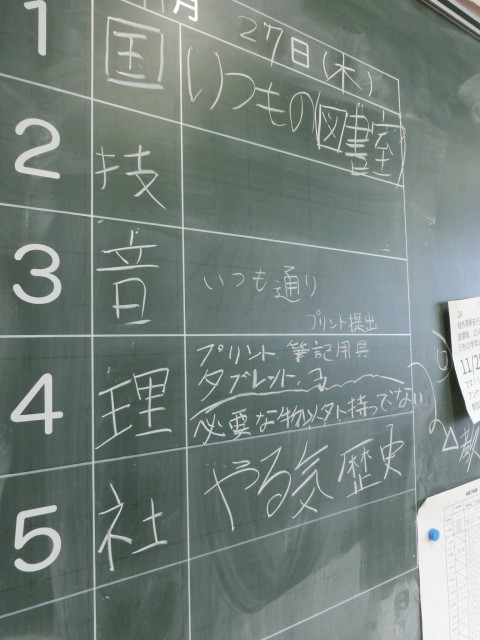 月 27日(木)
1 国 いつもの図書室
2 技
3 音 いつも通り
プリント提出
4 理 プリント、筆記用具
タブレット
必要な物以外持ってこない
5 社 やる気 歴史